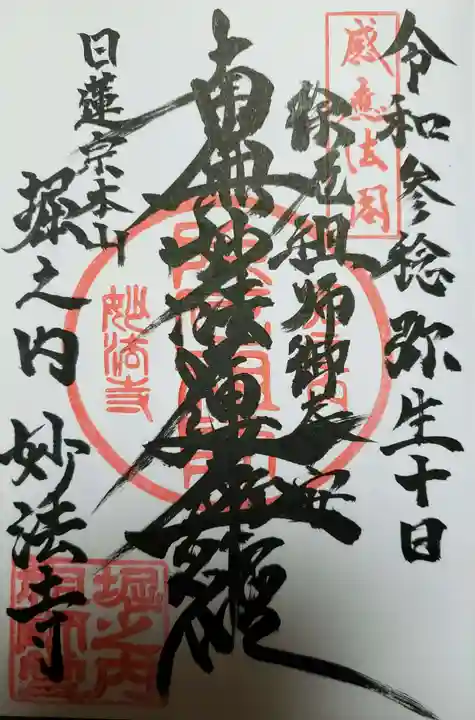 令和参稔弥生十日
感應法閣
除厄祖師御
南無妙法蓮華経
日蓮宗本山
堀之内 妙法寺
妙法寺
堀之内
祖師堂